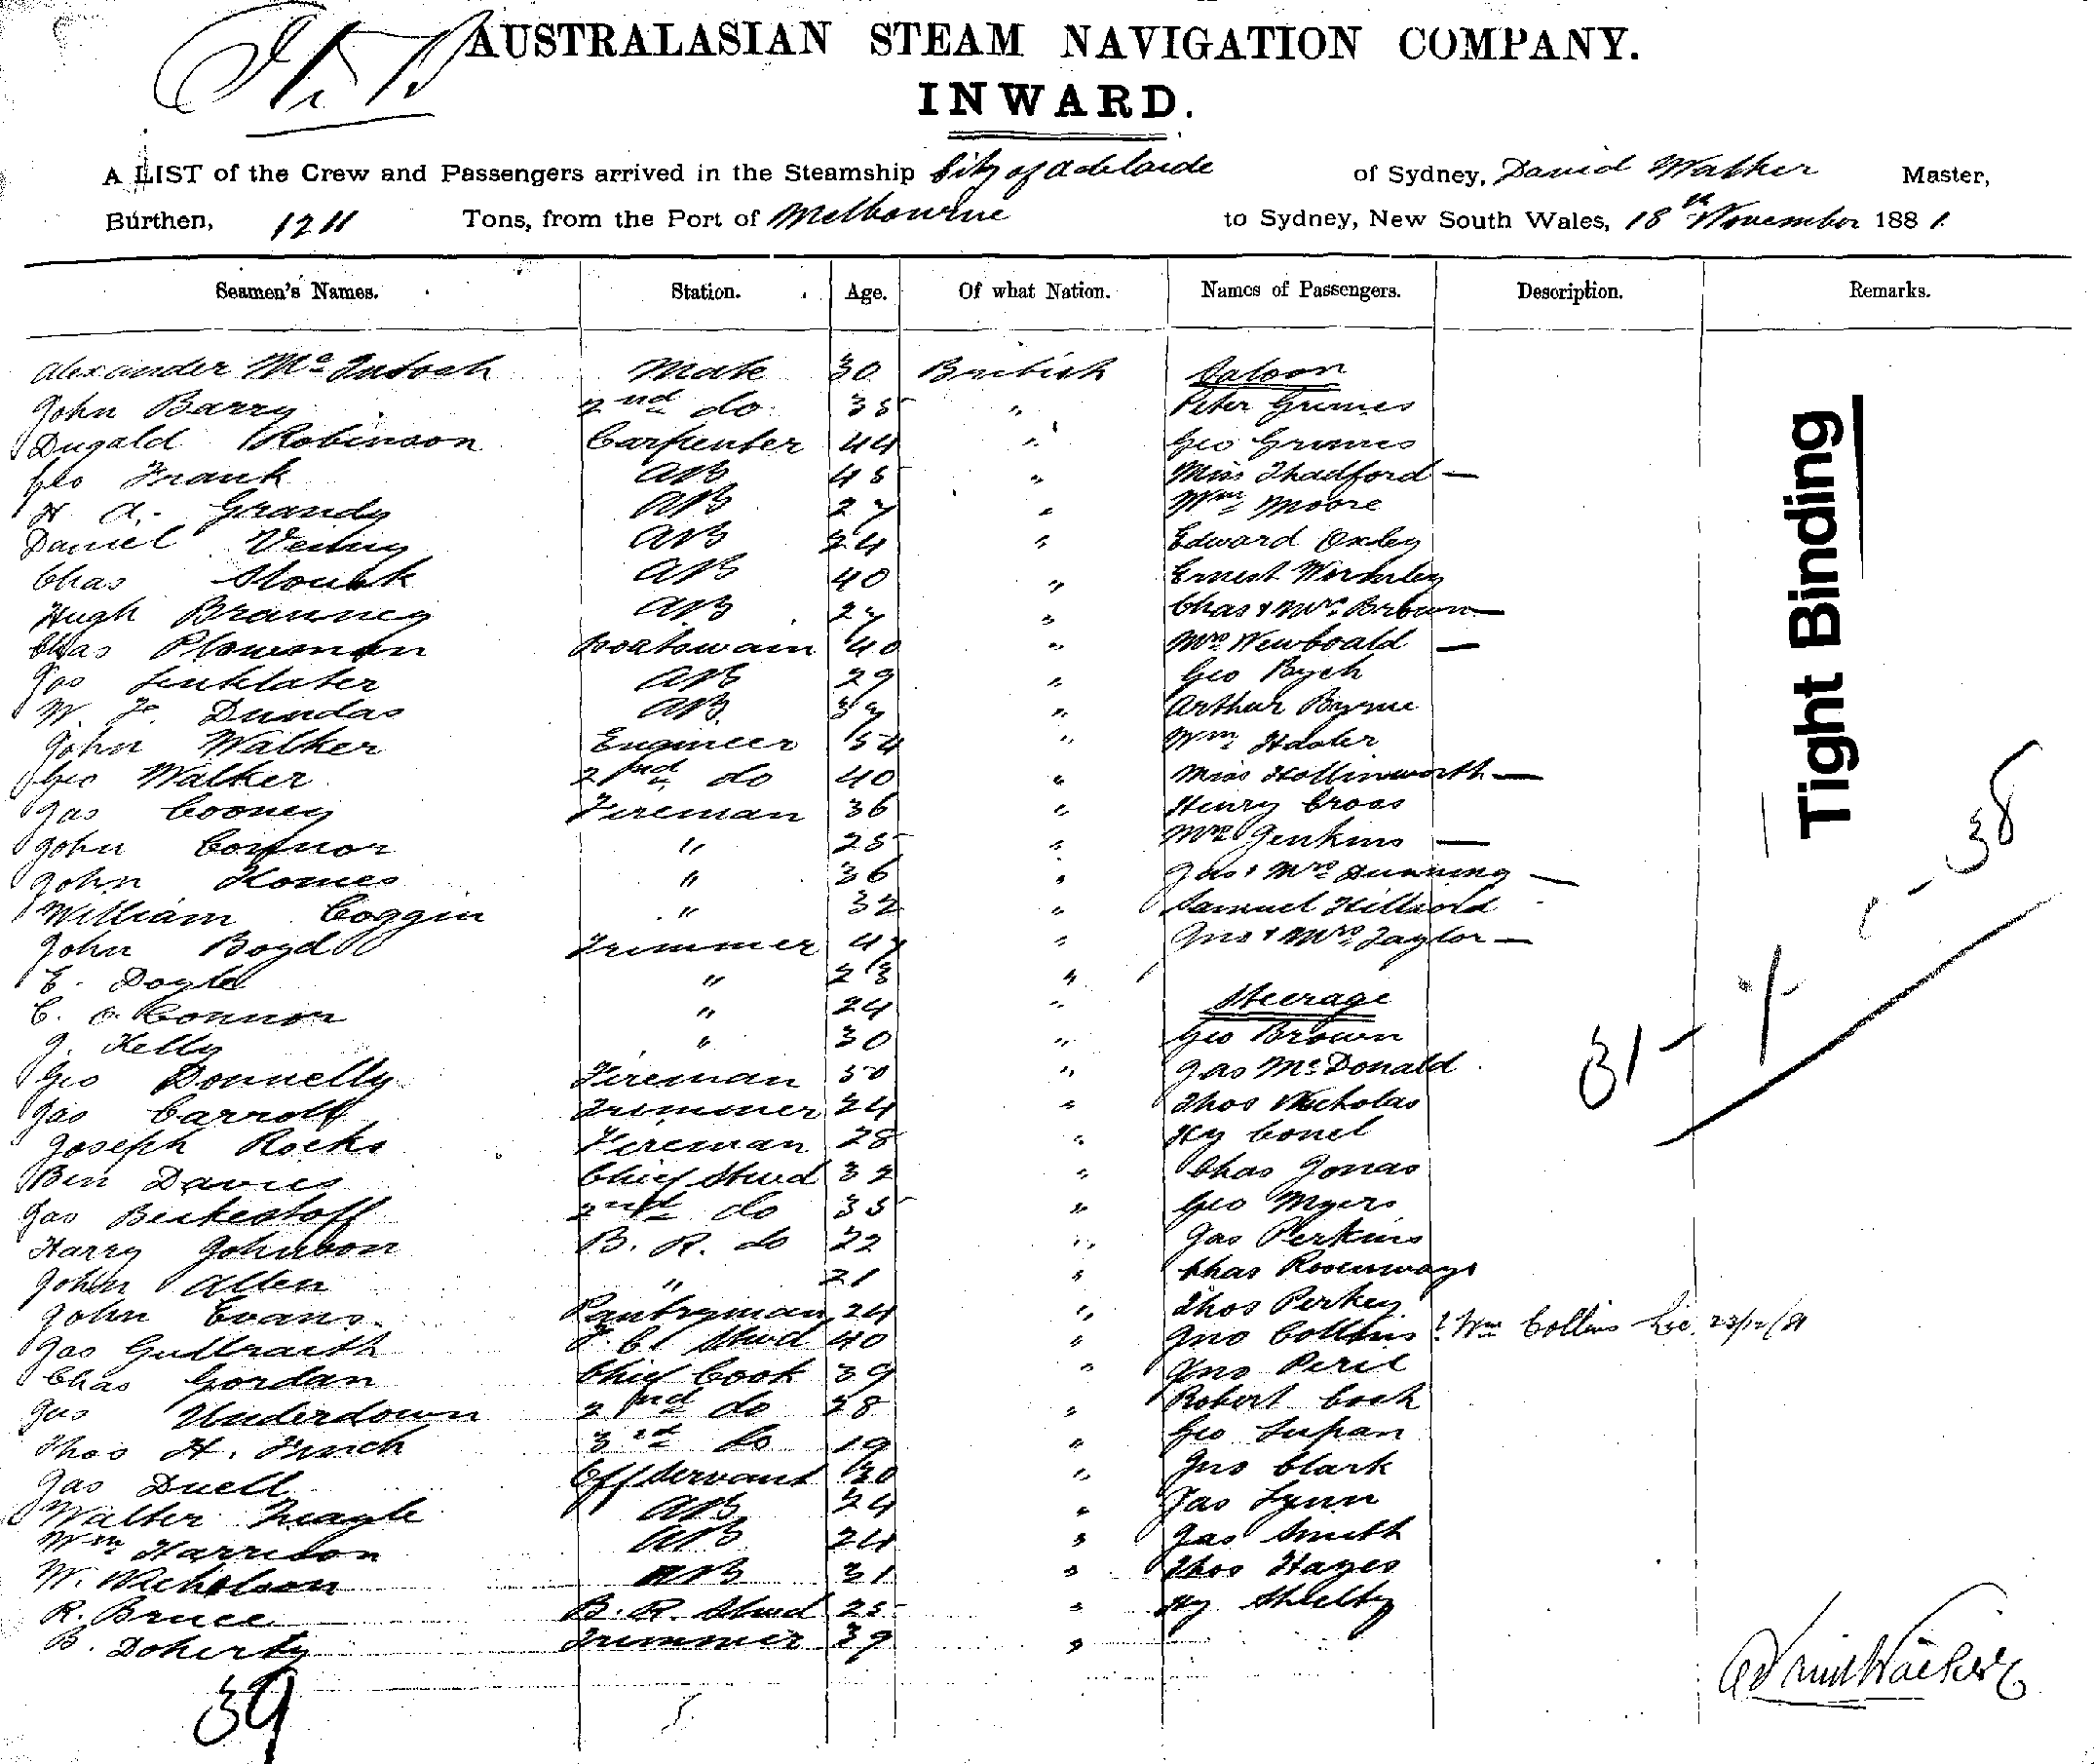 AUSTRALASIAN STEAM NAVIGATION COMPANY.
INWARD.
A LIST of the Crew and Passengers arrived in the Steamship City of Adelaide of Sydney, David Walker Master,
Burthen, 1211 Tons, from the Port of Melbourne to Sydney, New South Wales, 18th November 1881.
Seamen's Names. Station. Age. Of what Nation. Names of Passengers. Description. Remarks.
Alexander McIntosh Mate 30 British Saloon
John Barry 2nd do 35 " Peter Grimes
Dugald Robinson Carpenter 44 " Geo Grimes
Geo Frank AB 45 " Miss Thadford —
H A. Grandy AB 27 " Wm Moore
Daniel AB 24 " Edward Oxley
Chas AB 40 " Ernest Wormley
Hugh Branney AB 27 " Chas & Mrs Brown —
Chas Plowman Boatswain 40 " Mrs Newboald —
Jas Sinklater AB 29 " Geo
W. Dundas AB 37 " Arthur Byrne
John Walker Engineer 54 " Wm
Geo Walker 2nd do 40 " Miss Hollinworth —
Jas Cooney Fireman 36 " Henry Cross
John Connor " 25 " Mrs Jenkins —
John Homes " 36 " Jas & Mrs Dunning —
William Coggin " 32 " Samuel
John Boyd Trimmer 47 " Jno & Mrs Taylor —
E. Doyle " 23 "
C. O Connor " 24 " Steerage
J. Kelly " 30 " Geo Brown
Geo Donnelly Fireman 50 " Jas McDonald
Jas Carroll Trimmer 24 " Thos Nicholas
Joseph Rocks Fireman 28 " Hy Conel
Ben Davies Chief Stwd 32 " Chas Jonas
Jas 2nd do 35 " Geo Myers
Harry Johnson B. R. do 22 " Jas Perkins
John Allen " 21 " Chas
John Evans Pantryman 24 " Thos Perkey
Jas Gullraith F. Cl Stwd 40 " Jno Collins ? Wm Collins 23/12/81
Chas Gordan Chief Cook 39 " Jno Peril
Jas Underdown 2nd do 28 " Robert Cook
Thos H. 3rd do 19 " Geo Supan
Jas Duell Off Servant 30 " Jno Clark
Walter Neagle AB 24 " Jas Lynn
Wm Harrison AB 24 " Jas Smith
W. Nicholson AB 31 " Thos Hayes
R. Bruce B. R. Stwd 25 " Hy Shelty
B. Doherty Trimmer 39 "
39
Tight Binding
31 - 7 - 38
David Walker